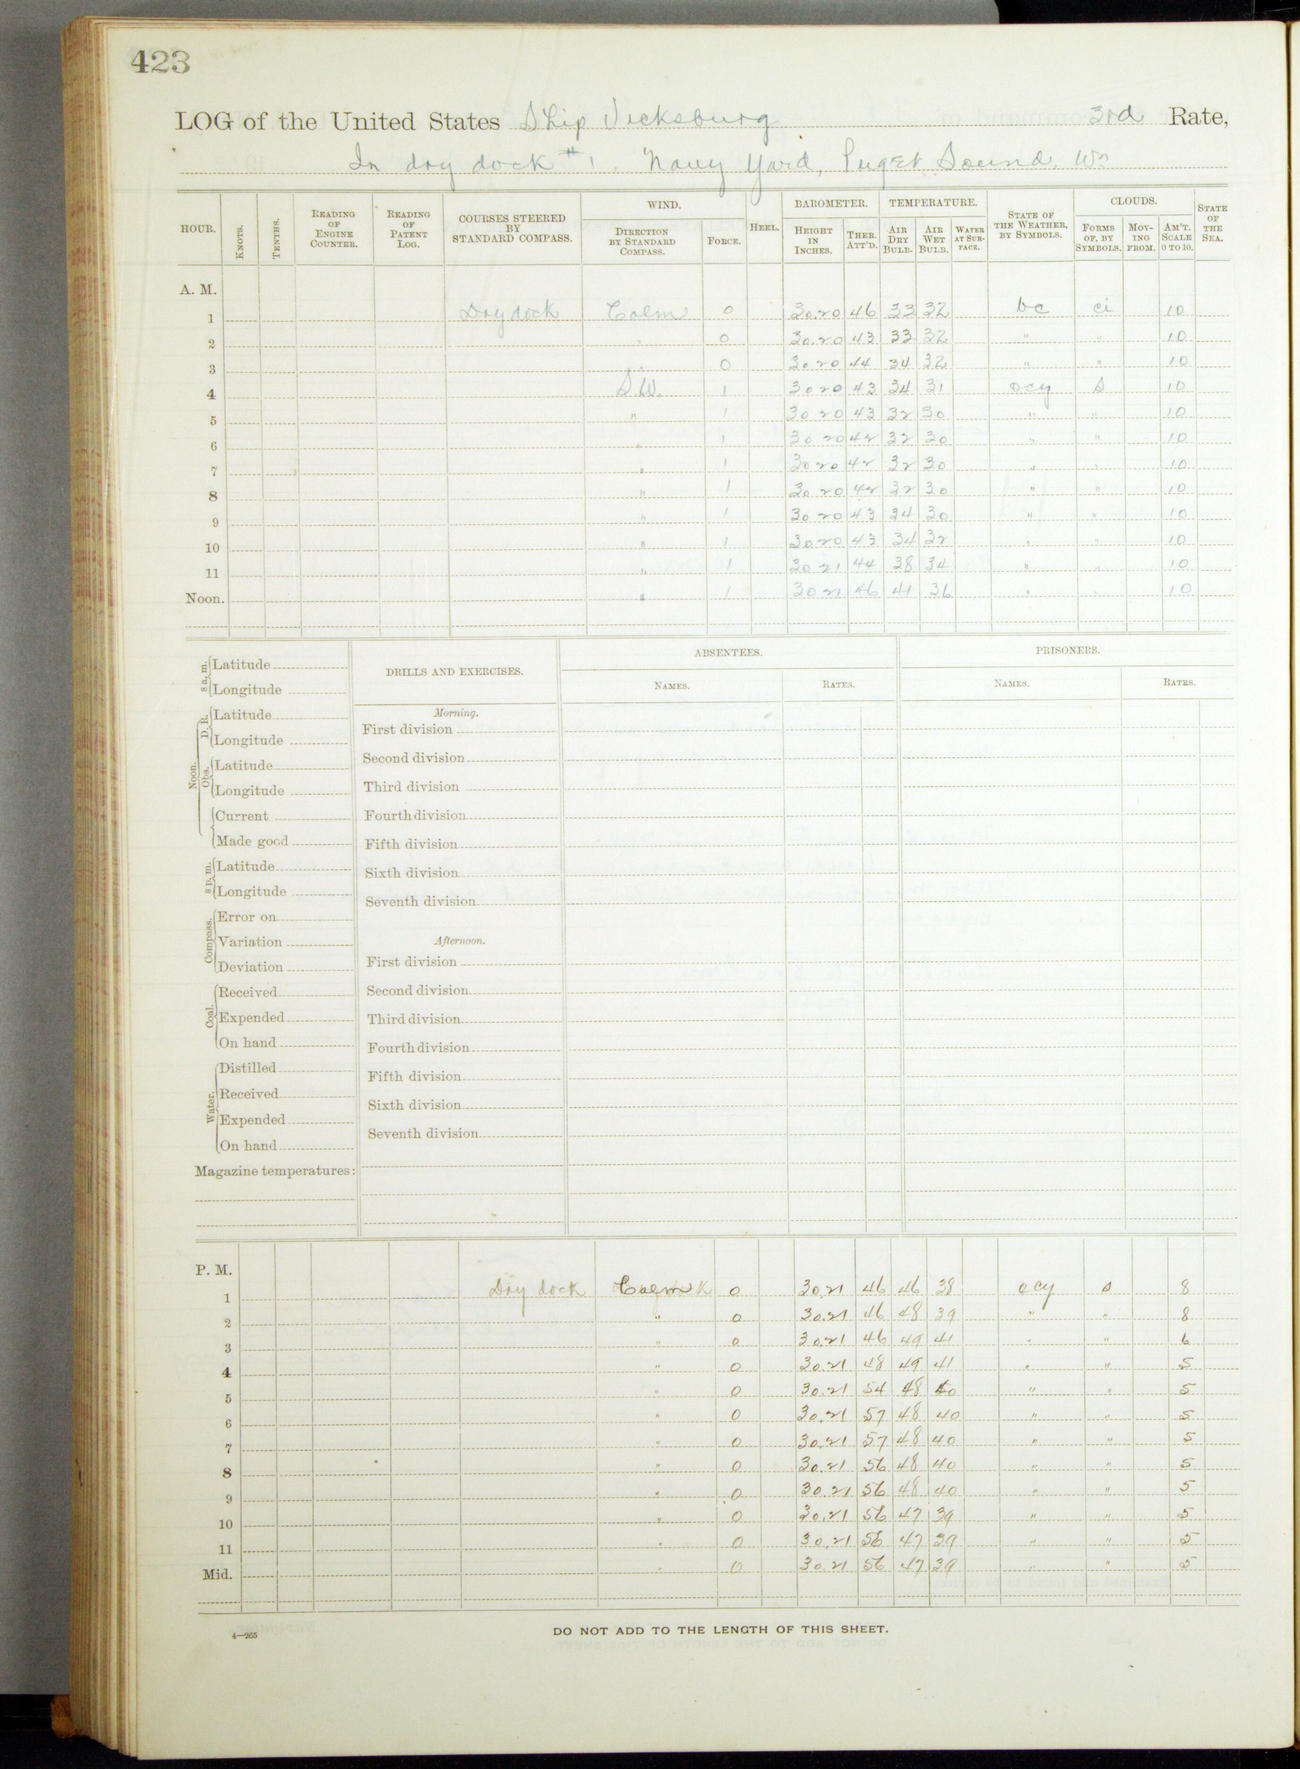 423
LOG of the United States Ship Vicksburg 3rd Rate,
In dry dock #1. Navy Yard, Puget Sound. Wn
HOUR. KNOTS. TENTHS. READING OF ENGINE COUNTER. READING OF PATENT LOG. COURSES STEERED BY STANDARD COMPASS. WIND. DIRECTION BY STANDARD COMPASS. FORCE. HEEL. BAROMETER. HEIGHT IN INCHES. THER. ATT'D. TEMPERATURE. AIR DRY BULB. AIR WET BULB. WATER AT SURFACE. STATE OF THE WEATHER, BY SYMBOLS. CLOUDS. FORMS OF, BY SYMBOLS. MOVING FROM. AM'T. SCALE 0 TO 10. STATE OF THE SEA.
A. M.
1 Dry dock Calm 0 30.20 46 33 32 bc ci 10
2 " 0 30.20 43 33 32 " " 10
3 " 0 30 20 44 34 32 " " 10
4 S.W. 1 30 20 43 34 31 ocy S 10
5 " 1 30 20 43 32 30 " " 10
6 " 1 30 20 42 32 30 " " 10
7 " 1 30 20 42 32 30 " " 10
8 " 1 30 20 42 32 30 " " 10
9 " 1 30 20 43 34 30 " " 10
10 " 1 30 20 43 34 32 " " 10
11 " 1 30 21 44 38 34 " " 10
Noon. " 1 30 21 46 41 36 " " 10
8 a. m. Latitude
Longitude
Noon. D. R. Latitude
Longitude
Obs. Latitude
Longitude
Current
Made good
8 p. m. Latitude
Longitude
Compass. Error on
Variation
Deviation
Coal. Received
Expended
On hand
Water. Distilled
Received
Expended
On hand
Magazine temperatures:
DRILLS AND EXERCISES.
Morning.
First division
Second division
Third division
Fourth division
Fifth division
Sixth division
Seventh division
Afternoon.
First division
Second division
Third division
Fourth division
Fifth division
Sixth division
Seventh division
ABSENTEES.
NAMES. RATES.
PRISONERS.
NAMES. RATES.
P. M.
1 Dry dock Calm 0 30.21 46 46 38 ocy s 8
2 " 0 30.21 46 48 39 " " 8
3 " 0 30.21 46 49 41 " " 6
4 " 0 30.21 48 49 41 " " 5
5 " 0 30.21 54 48 40 " " 5
6 " 0 30.21 57 48 40 " " 5
7 " 0 30.21 57 48 40 " " 5
8 " 0 30.21 56 48 40 " " 5
9 " 0 30.21 56 48 40 " " 5
10 " 0 30.21 56 47 39 " " 5
11 " 0 30.21 56 47 39 " " 5
Mid. " 0 30.21 56 47 39 " " 5
4—265
DO NOT ADD TO THE LENGTH OF THIS SHEET.